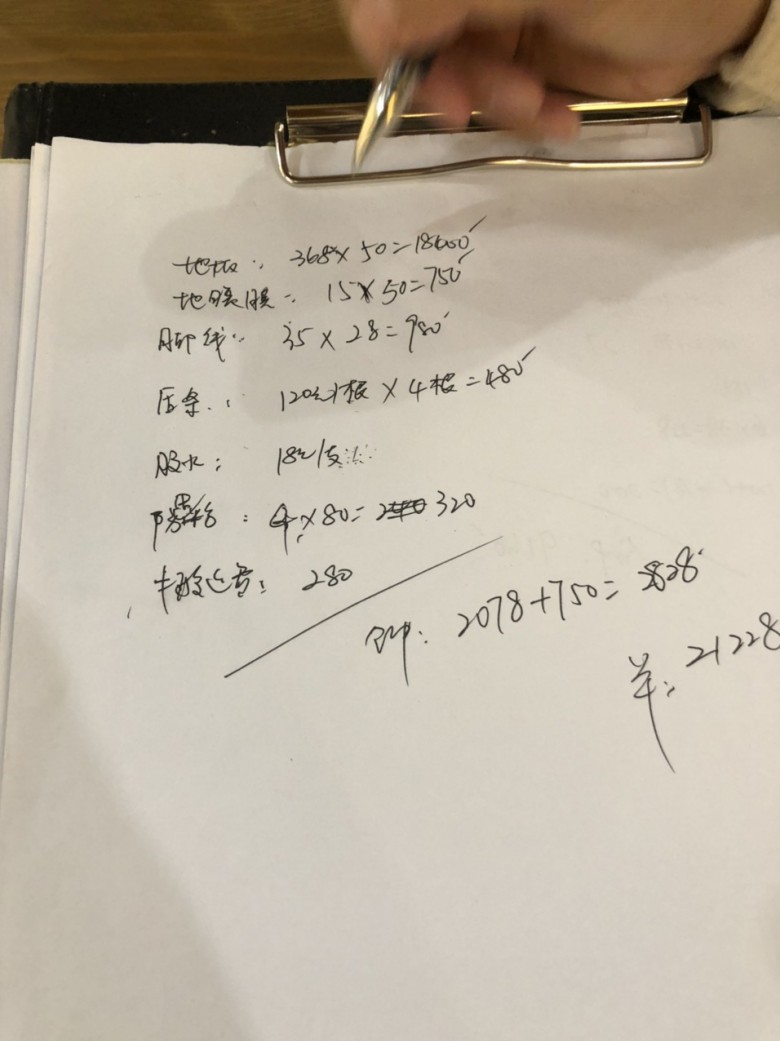 地板: 368×50=18400
地暖膜: 15×50=750
脚线: 35×28=980
压条: 120元/根×4根=480
胶水: 18元/支
4×80= 320
280
2078+750=2828
羊: 21228